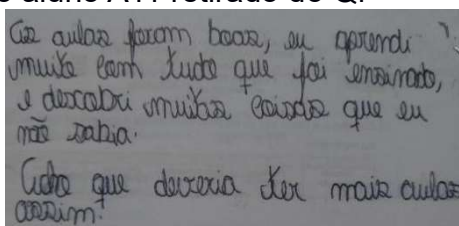 o aluno A11 retirado do Q.
As aulas foram boas, eu aprendi
muito com tudo que foi ensinado,
e descobri muitas coisas que eu
não sabia.
Acho que deveria ter mais aulas
assim!